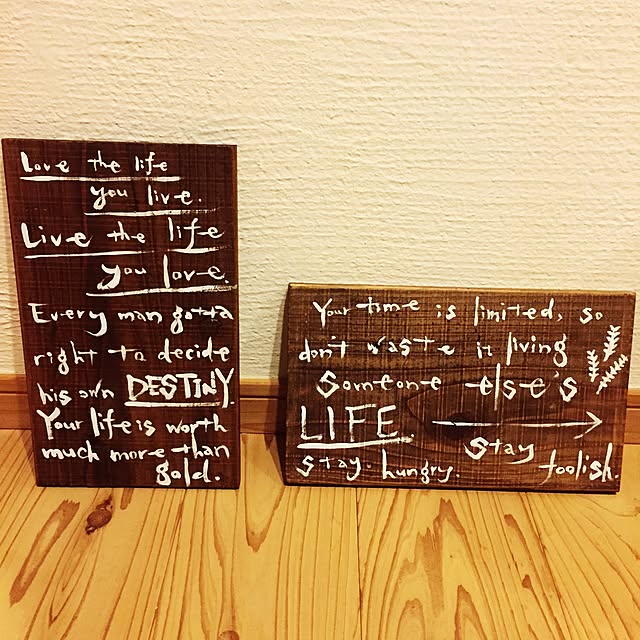 Love the life
you live.
Live the life
you love.
Every man gotta
right to decide
his own DESTINY.
Your life is worth
much more than
gold.
Your time is limited, so
don't waste it living
Someone else's
LIFE
Stay hungry.
Stay
foolish.